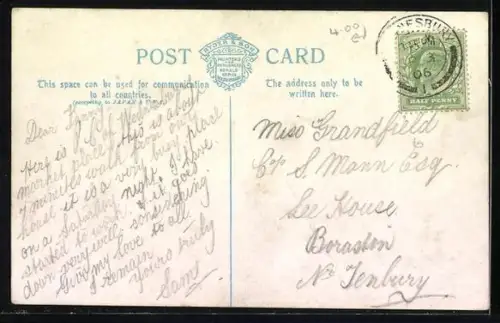 POST CARD
RYDER & SON
PRINTERS
This space can be used for communication
to all countries.
(excepting to JAPAN &
The address only to be
written here.
4.00
NESBURY
06
HALF PENNY
Dear Fanny
Here is P.C. of
market place this is about
7 minutes walk from our
house it is a very busy place
on a Saturday night. I have
started to work I it goes
down very well considering
Give my love to all
I remain
Yours truly
Sam
Miss Grandfield
C/o S. Mann Esq.
Lee House
Boraston
Nr Tenbury